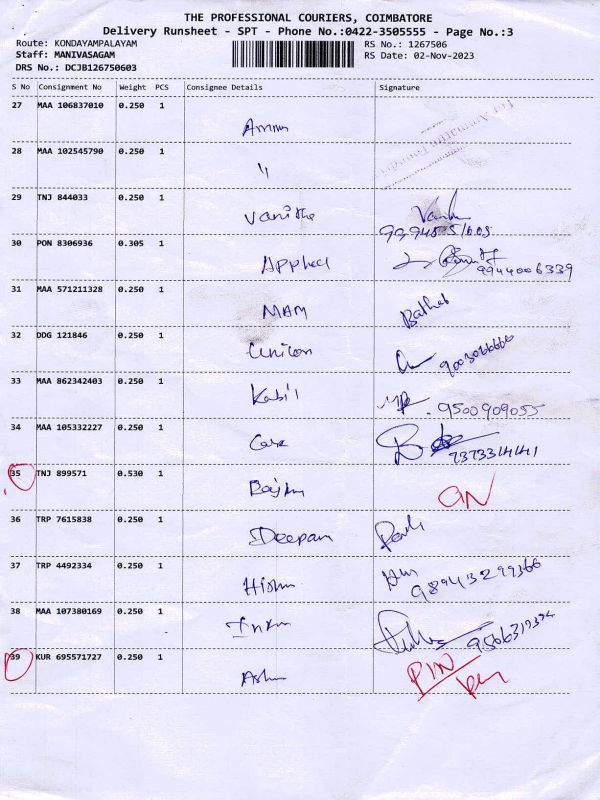 THE PROFESSIONAL COURIERS, COIMBATORE
Delivery Runsheet - SPT - Phone No.:0422-3505555 - Page No.:3
Route: KONDAYAMPALAYAM
RS No.: 1267506
Staff: MANIVASAGAM
RS Date: 02-Nov-2023
DRS No.: DCJB126750603
S No Consignment No Weight PCS Consignee Details Signature
27 MAA 106837010 0.250 1
28 MAA 102545790 0.250 1 "
29 TNJ 844033 0.250 1 Vanitha
30 PON 8306936 0.305 1 9944006339
31 MAA 571211328 0.250 1 MAM
32 DDG 121846 0.250 1 Unicon
33 MAA 862342403 0.250 1 Kabil 9500909055
34 MAA 105332227 0.250 1 Care
35 TNJ 899571 0.530 1
36 TRP 7615838 0.250 1 Deepam
37 TRP 4492334 0.250 1 98943299366
38 MAA 107380169 0.250 1
39 KUR 695571727 0.250 1 PIN